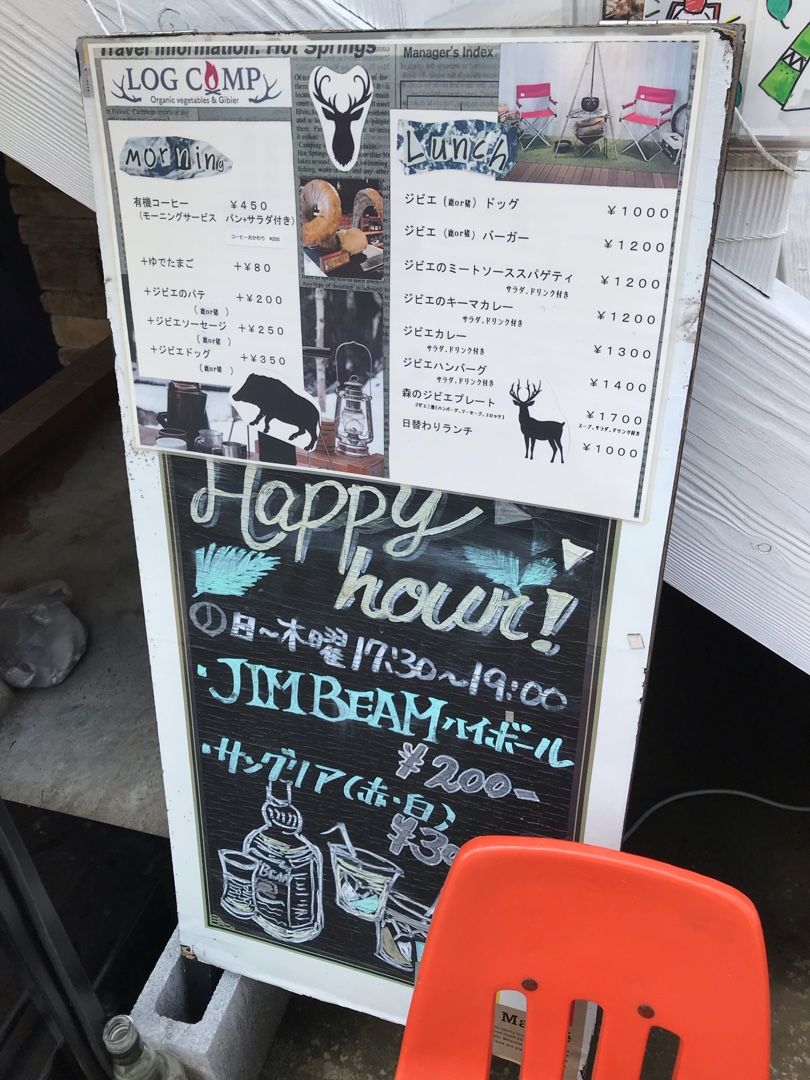 Travel Information: Hot Springs
Manager's Index
LOG CAMP
Organic vegetables & Gibier
morning
有機コーヒー ¥450
(モーニングサービス パン+サラダ付き)
コーヒーおかわり ¥200
+ゆでたまご +¥80
+ジビエのパテ +¥200
(鹿or猪)
+ジビエソーセージ +¥250
(鹿or猪)
+ジビエドッグ +¥350
(鹿or猪)
Lunch
ジビエ(鹿or猪)ドッグ ¥1000
ジビエ(鹿or猪)バーガー ¥1200
ジビエのミートソーススパゲティ ¥1200
サラダ、ドリンク付き
ジビエのキーマカレー ¥1200
サラダ、ドリンク付き
ジビエカレー ¥1300
サラダ、ドリンク付き
ジビエハンバーグ ¥1400
サラダ、ドリンク付き
森のジビエプレート ¥1700
ジビエ三種(ハンバーグ、ソーセージ、コロッケ) スープ、サラダ、ドリンク付き
日替わりランチ ¥1000
Happy
hour!
日~木曜 17:30~19:00
・JIM BEAM ハイボール
¥200-
・サングリア(赤・白)
¥30
BEAM
Ma